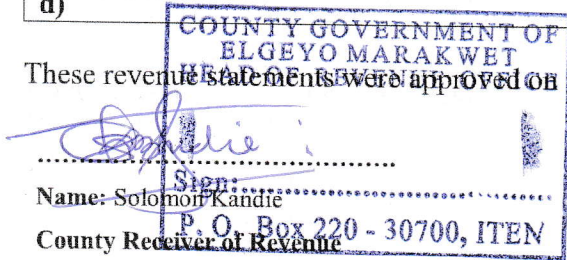 d)
COUNTY GOVERNMENT OF
ELGEYO MARAKWET
HEAD OF REVENUE OFFICE
These revenue statements were approved on
Kandie
Sign:
Name: Solomon Kandie
P. O. Box 220 - 30700, ITEN
County Receiver of Revenue